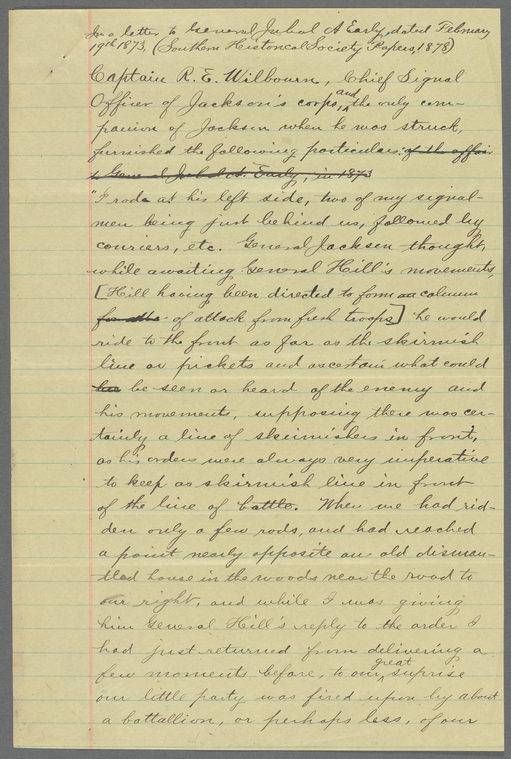 In a letter to General Jubal A Early, dated February
19th 1873, (Southern Historical Society Papers, 1878)
Captain R. E. Wilbourn, Chief Signal
Officer of Jackson's corps, and the only com-
panion of Jackson when he was struck,
furnished the following particulars: of the affair
to General Jubal A. Early, in 1873
"I rode at his left side, two of my signal-
men being just behind us, followed by
couriers, etc. General Jackson thought,
while awaiting General Hill's movements,
[Hill having been directed to form an column
for atta of attack from fresh troops] he would
ride to the front as far as the skirmish
line or pickets and ascertain what could
be seen or heard of the enemy and
his movements, supposing there was cer-
tainly a line of skirmishers in front,
as his orders were always very imperative
to keep as skirmish line in front
of the line of battle. When we had rid-
den only a few rods, and had reached
a point nearly opposite an old disman-
tled house in the woods near the road to
our right, and while I was giving
him General Hill's reply to the order I
had just returned from delivering a
few moments before, to our great suprise
our little party was fired upon by about
a battallion, or perhaps less, of our